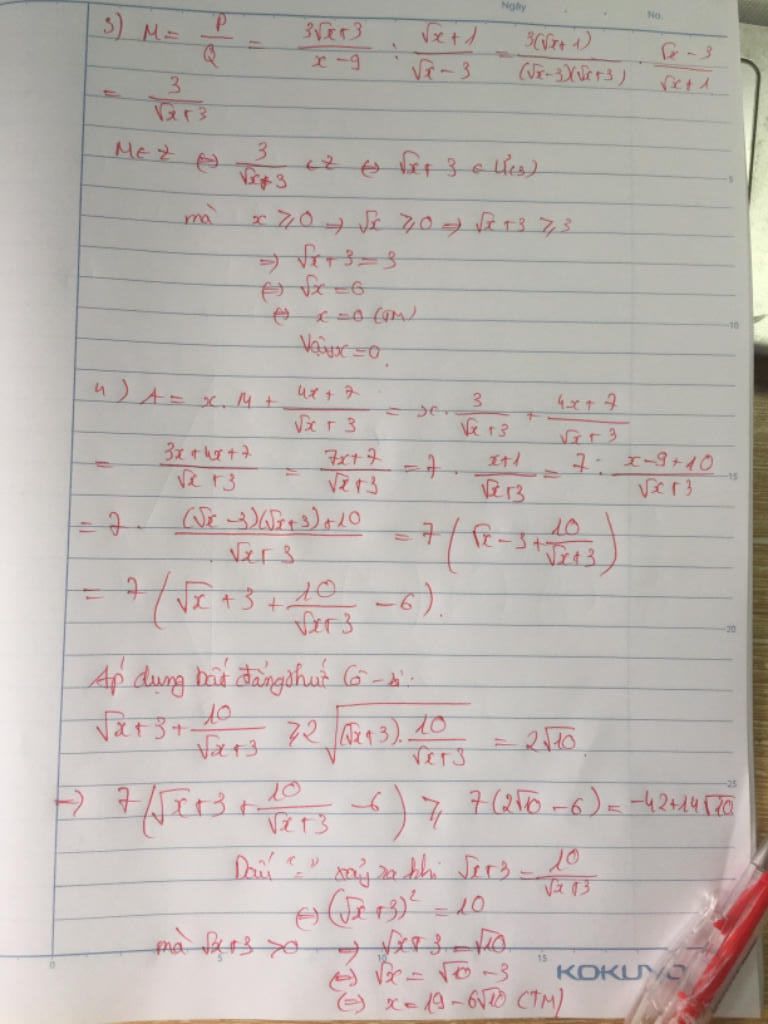 Ngày No.
3) M = P/Q = (3√x+3)/(x-9) : (√x+1)/(√x-3) = 3(√x+1)/((√x-3)(√x+3)) · (√x-3)/(√x+1)
= 3/(√x+3)
M∈Z ⇔ 3/(√x+3) ∈Z ⇔ √x+3 ∈ Ư(3)
mà x ⩾ 0 ⇒ √x ⩾ 0 ⇒ √x+3 ⩾ 3
⇒ √x+3 = 3
⇔ √x = 0
⇔ x = 0 (TM)
Vậy x = 0.
4) A = x. M + (4x+7)/(√x+3) = x · 3/(√x+3) + (4x+7)/(√x+3)
= (3x+4x+7)/(√x+3) = (7x+7)/(√x+3) = 7 · (x+1)/(√x+3) = 7 · (x-9+10)/(√x+3)
= 7 · ((√x-3)(√x+3)+10)/(√x+3) = 7(√x-3+10/(√x+3))
= 7(√x+3+10/(√x+3) -6).
Áp dụng bất đẳng thức Cô-si:
√x+3+10/(√x+3) ⩾ 2√((√x+3).10/(√x+3)) = 2√10.
→ 7(√x+3+10/(√x+3) -6) ⩾ 7(2√10-6) = -42+14√10
Dấu "=" xảy ra khi √x+3 = 10/(√x+3)
⇔ (√x+3)² = 10
mà √x+3 >0 → √x+3 = √10
⇔ √x = √10-3
⇔ x = 19-6√10 (TM)
5
10
15
20
25
0 5 10 15
KOKUYO